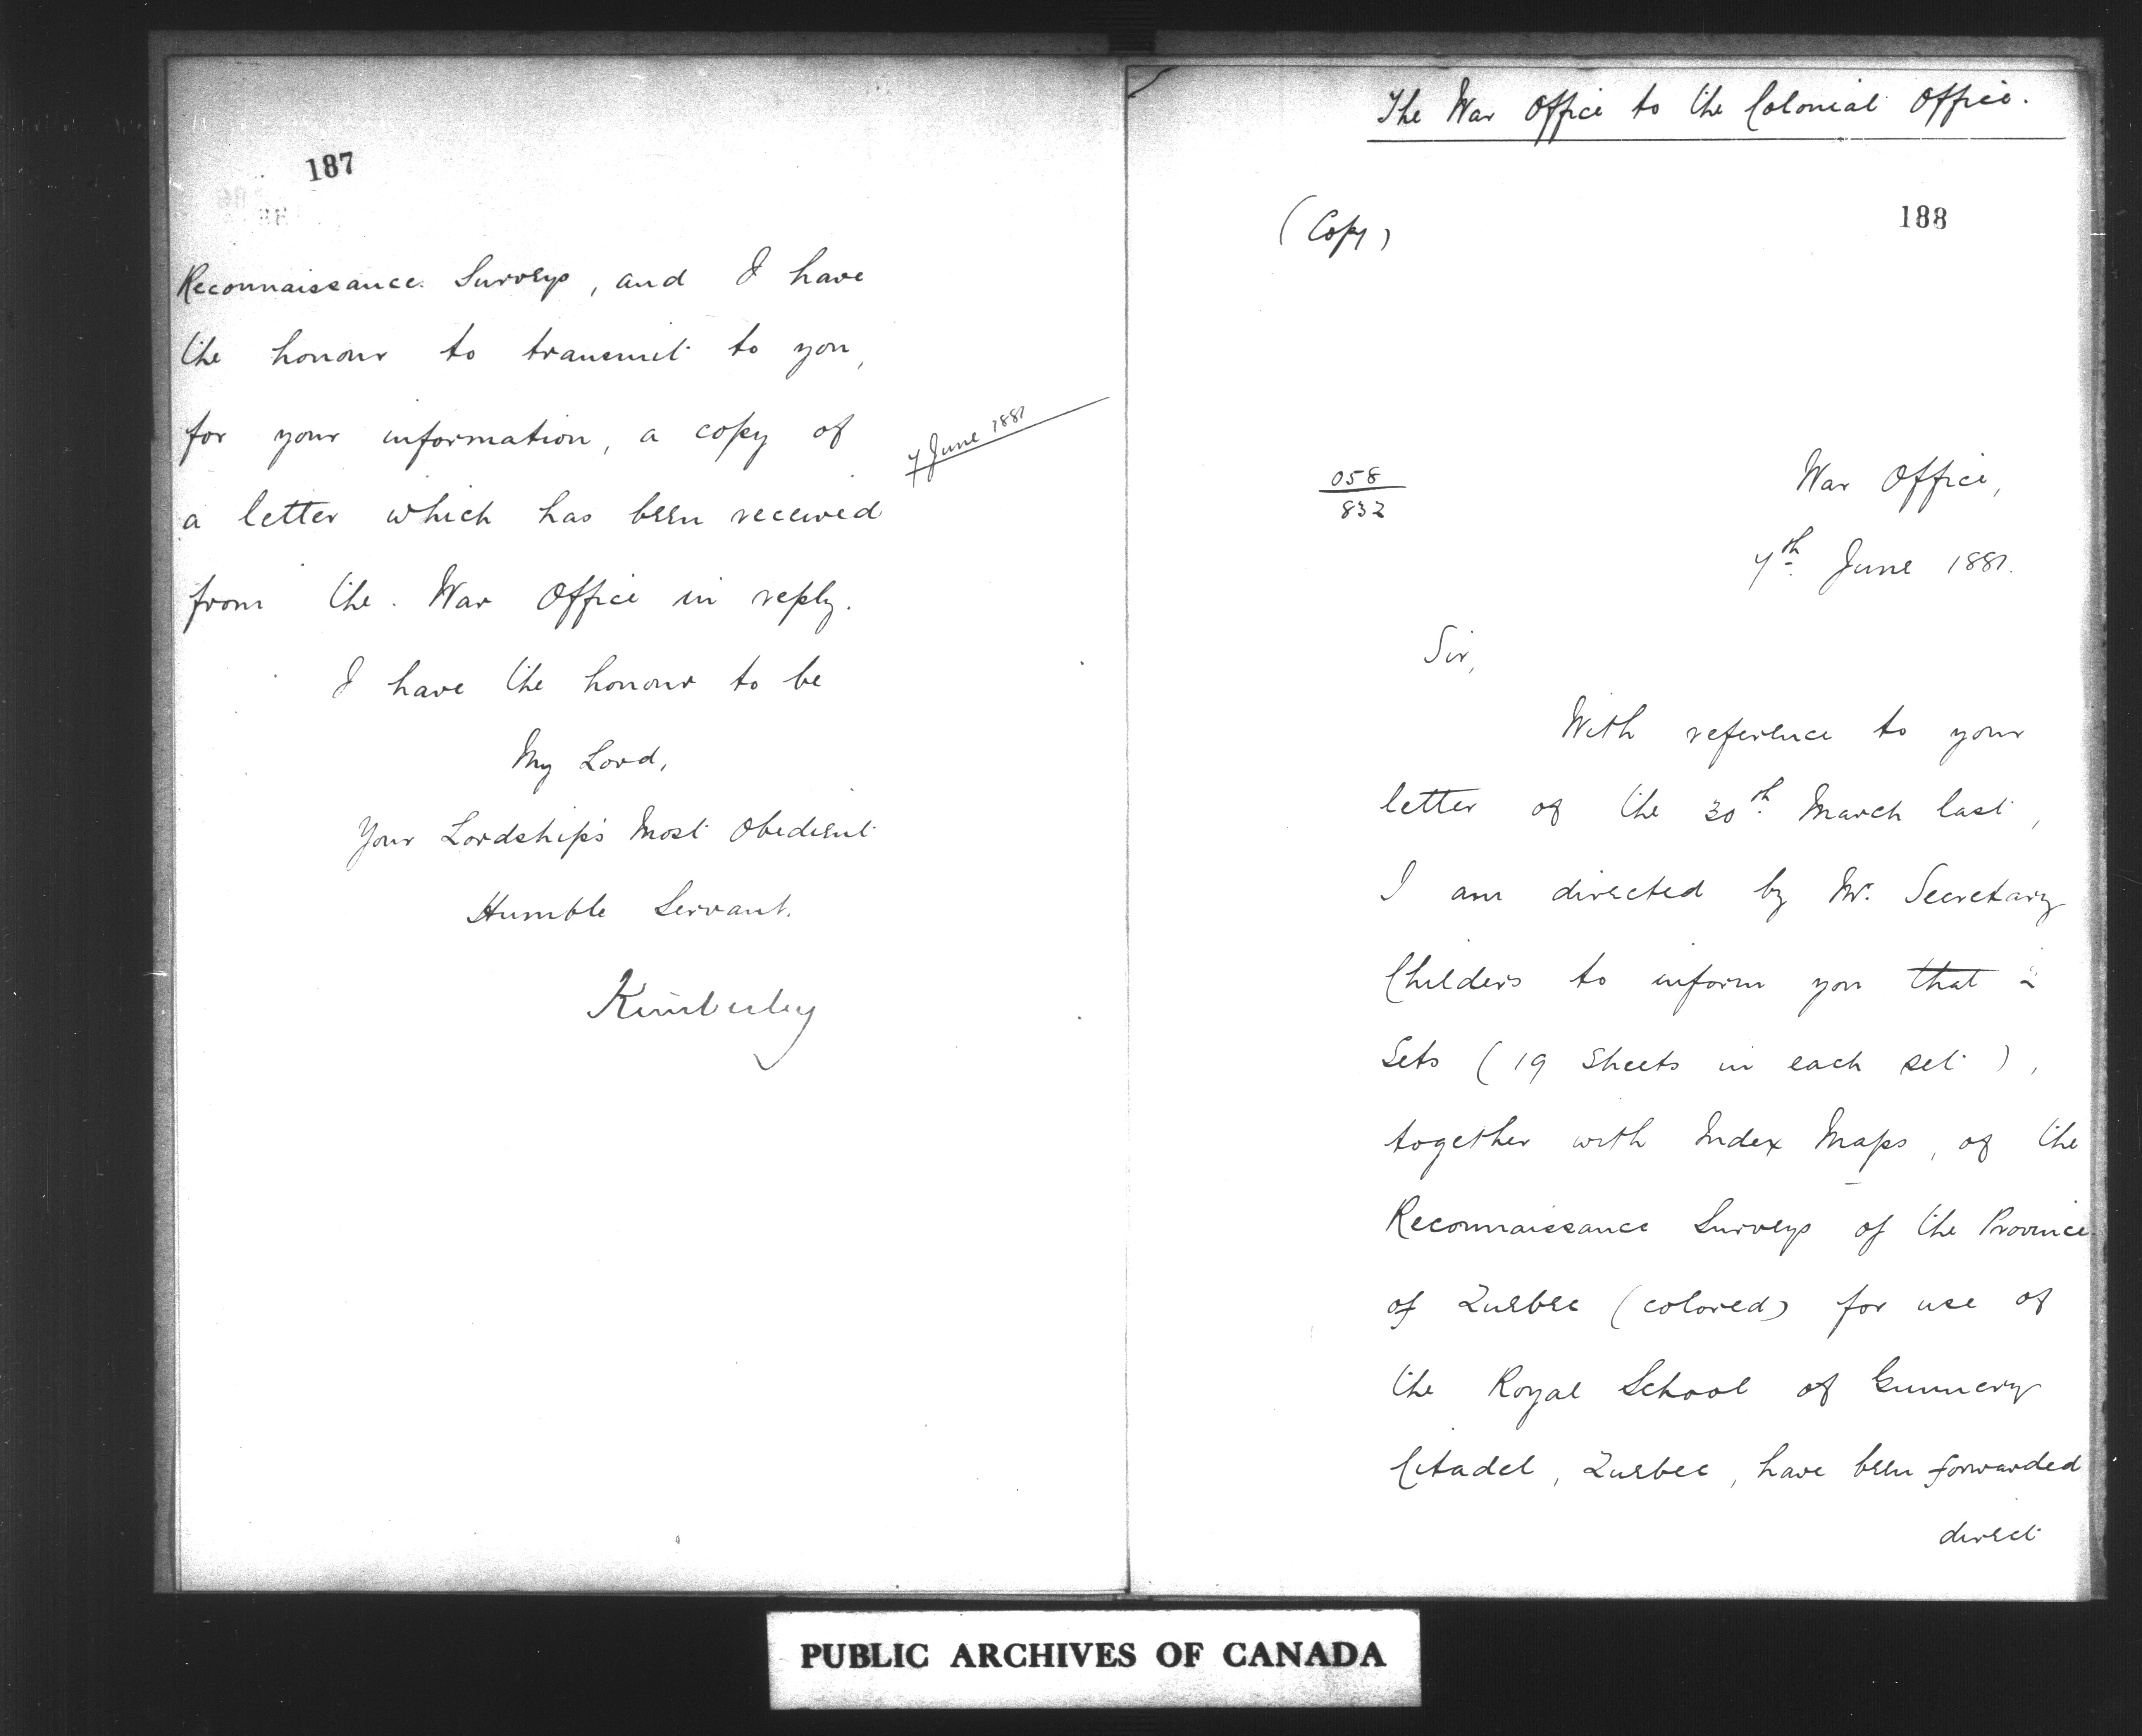 187
Reconnaissance Surveys, and I have
the honour to transmit to you,
for your information, a copy of
a letter which has been received
from the War Office in reply.
7 June 1881
I have the honour to be
My Lord,
Your Lordship's Most Obedient
Humble Servant.
Kimberley
The War Office to the Colonial Office.
(Copy)
188
058
832
War Office,
7th June 1881.
Sir,
With reference to your
letter of the 30th March last,
I am directed by Mr. Secretary
Childers to inform you that 2
Sets (19 Sheets in each set),
together with Index Maps, of the
Reconnaissance Surveys of the Province
of Quebec (colored) for use of
the Royal School of Gunnery
Citadel, Quebec, have been forwarded
direct
PUBLIC ARCHIVES OF CANADA